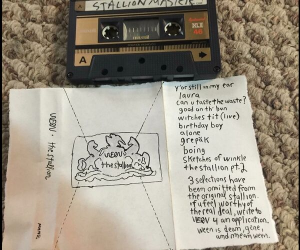 STALLION MASTER
A
WEEN.
the stallion
WEEN
the stallion
y'or still in my ear
laura
can u taste the waste?
good on th' bun
witches tit (live)
birthday boy
alone
grepak
boing
sketches of winkle
the stallion pt. 2
3 selections have
been omitted from
the original stallion.
if u feel worthy of
the real deal, write to
WEEN 4 an application.
ween is deam, gene,
and mean ween.